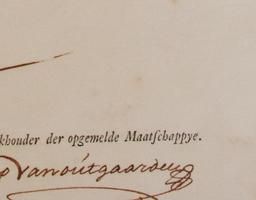 khouder der opgemelde Maatſchappye.
vanoútgaarden